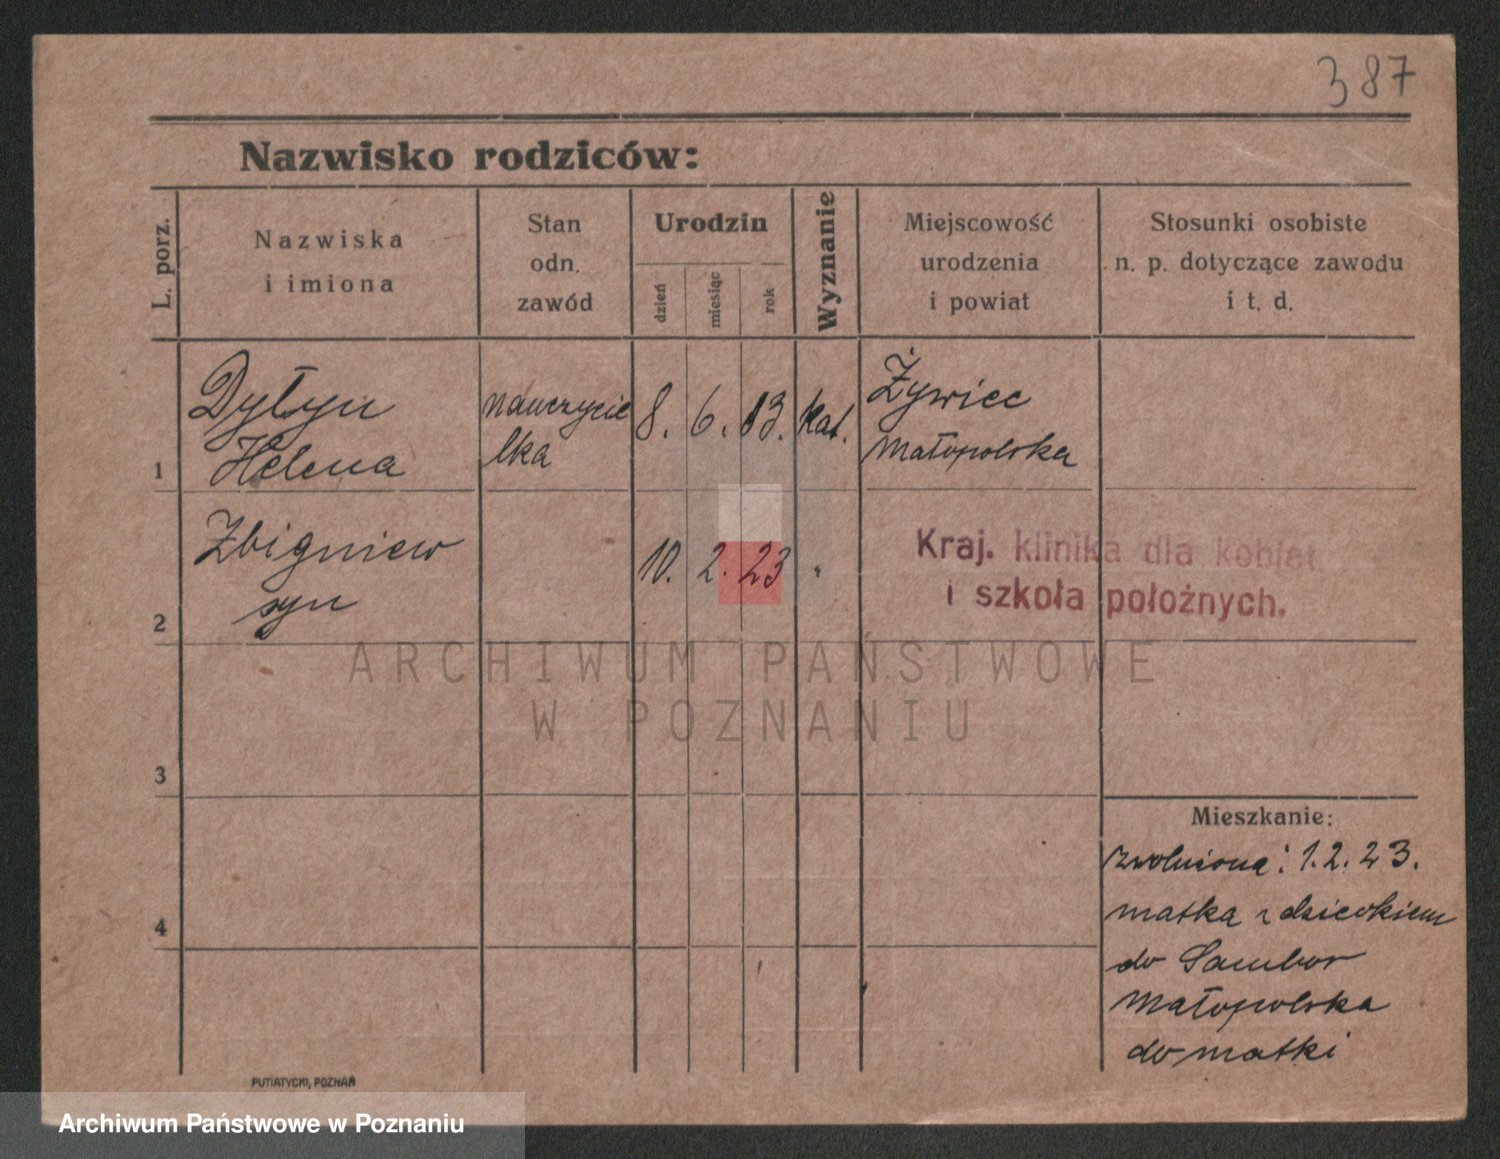 387
Nazwisko rodziców:
L. porz.
Nazwiska
i imiona
Stan
odn.
zawód
Urodzin
dzień
miesiąc
rok
Wyznanie
Miejscowość
urodzenia
i powiat
Stosunki osobiste
n. p. dotyczące zawodu
i t. d.
1
Dyłyn
Helena
nauczyciel
lka
8. 6. 13.
kat.
Żywiec
Małopolska
2
Zbigniew
syn
10. 2. 23
Kraj. klinika dla kobiet
i szkoła położnych.
ARCHIWUM PAŃSTWOWE
W POZNANIU
3
4
Mieszkanie:
zwolniona: 1.2.23.
matka z dzieckiem
do Sambor
Małopolska
do matki
PUTIATYCKI, POZNAŃ
Archiwum Państwowe w Poznaniu